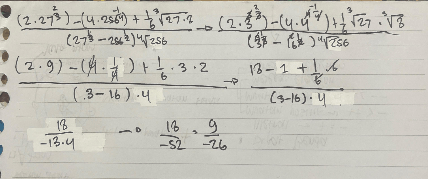 (2.27^(2/3)) - (4.256^(-1/4)) + 1/6 ∛27.2 / (27^(1/3) - 256^(1/2)) ∜256 → (2.3^(2/2)) - (4.4^(-1/4)) + 1/6 ∛27 . ∛8 / (3^(3/3) - 16^(2/2)) ∜256
(2.9) - (4.1/4) + 1/6 . 3 . 2 / (3-16) . 4 → 18 - 1 + 1/6 6 / (3-16) . 4
18 / -13.4 → 18 / -52 = 9 / -26